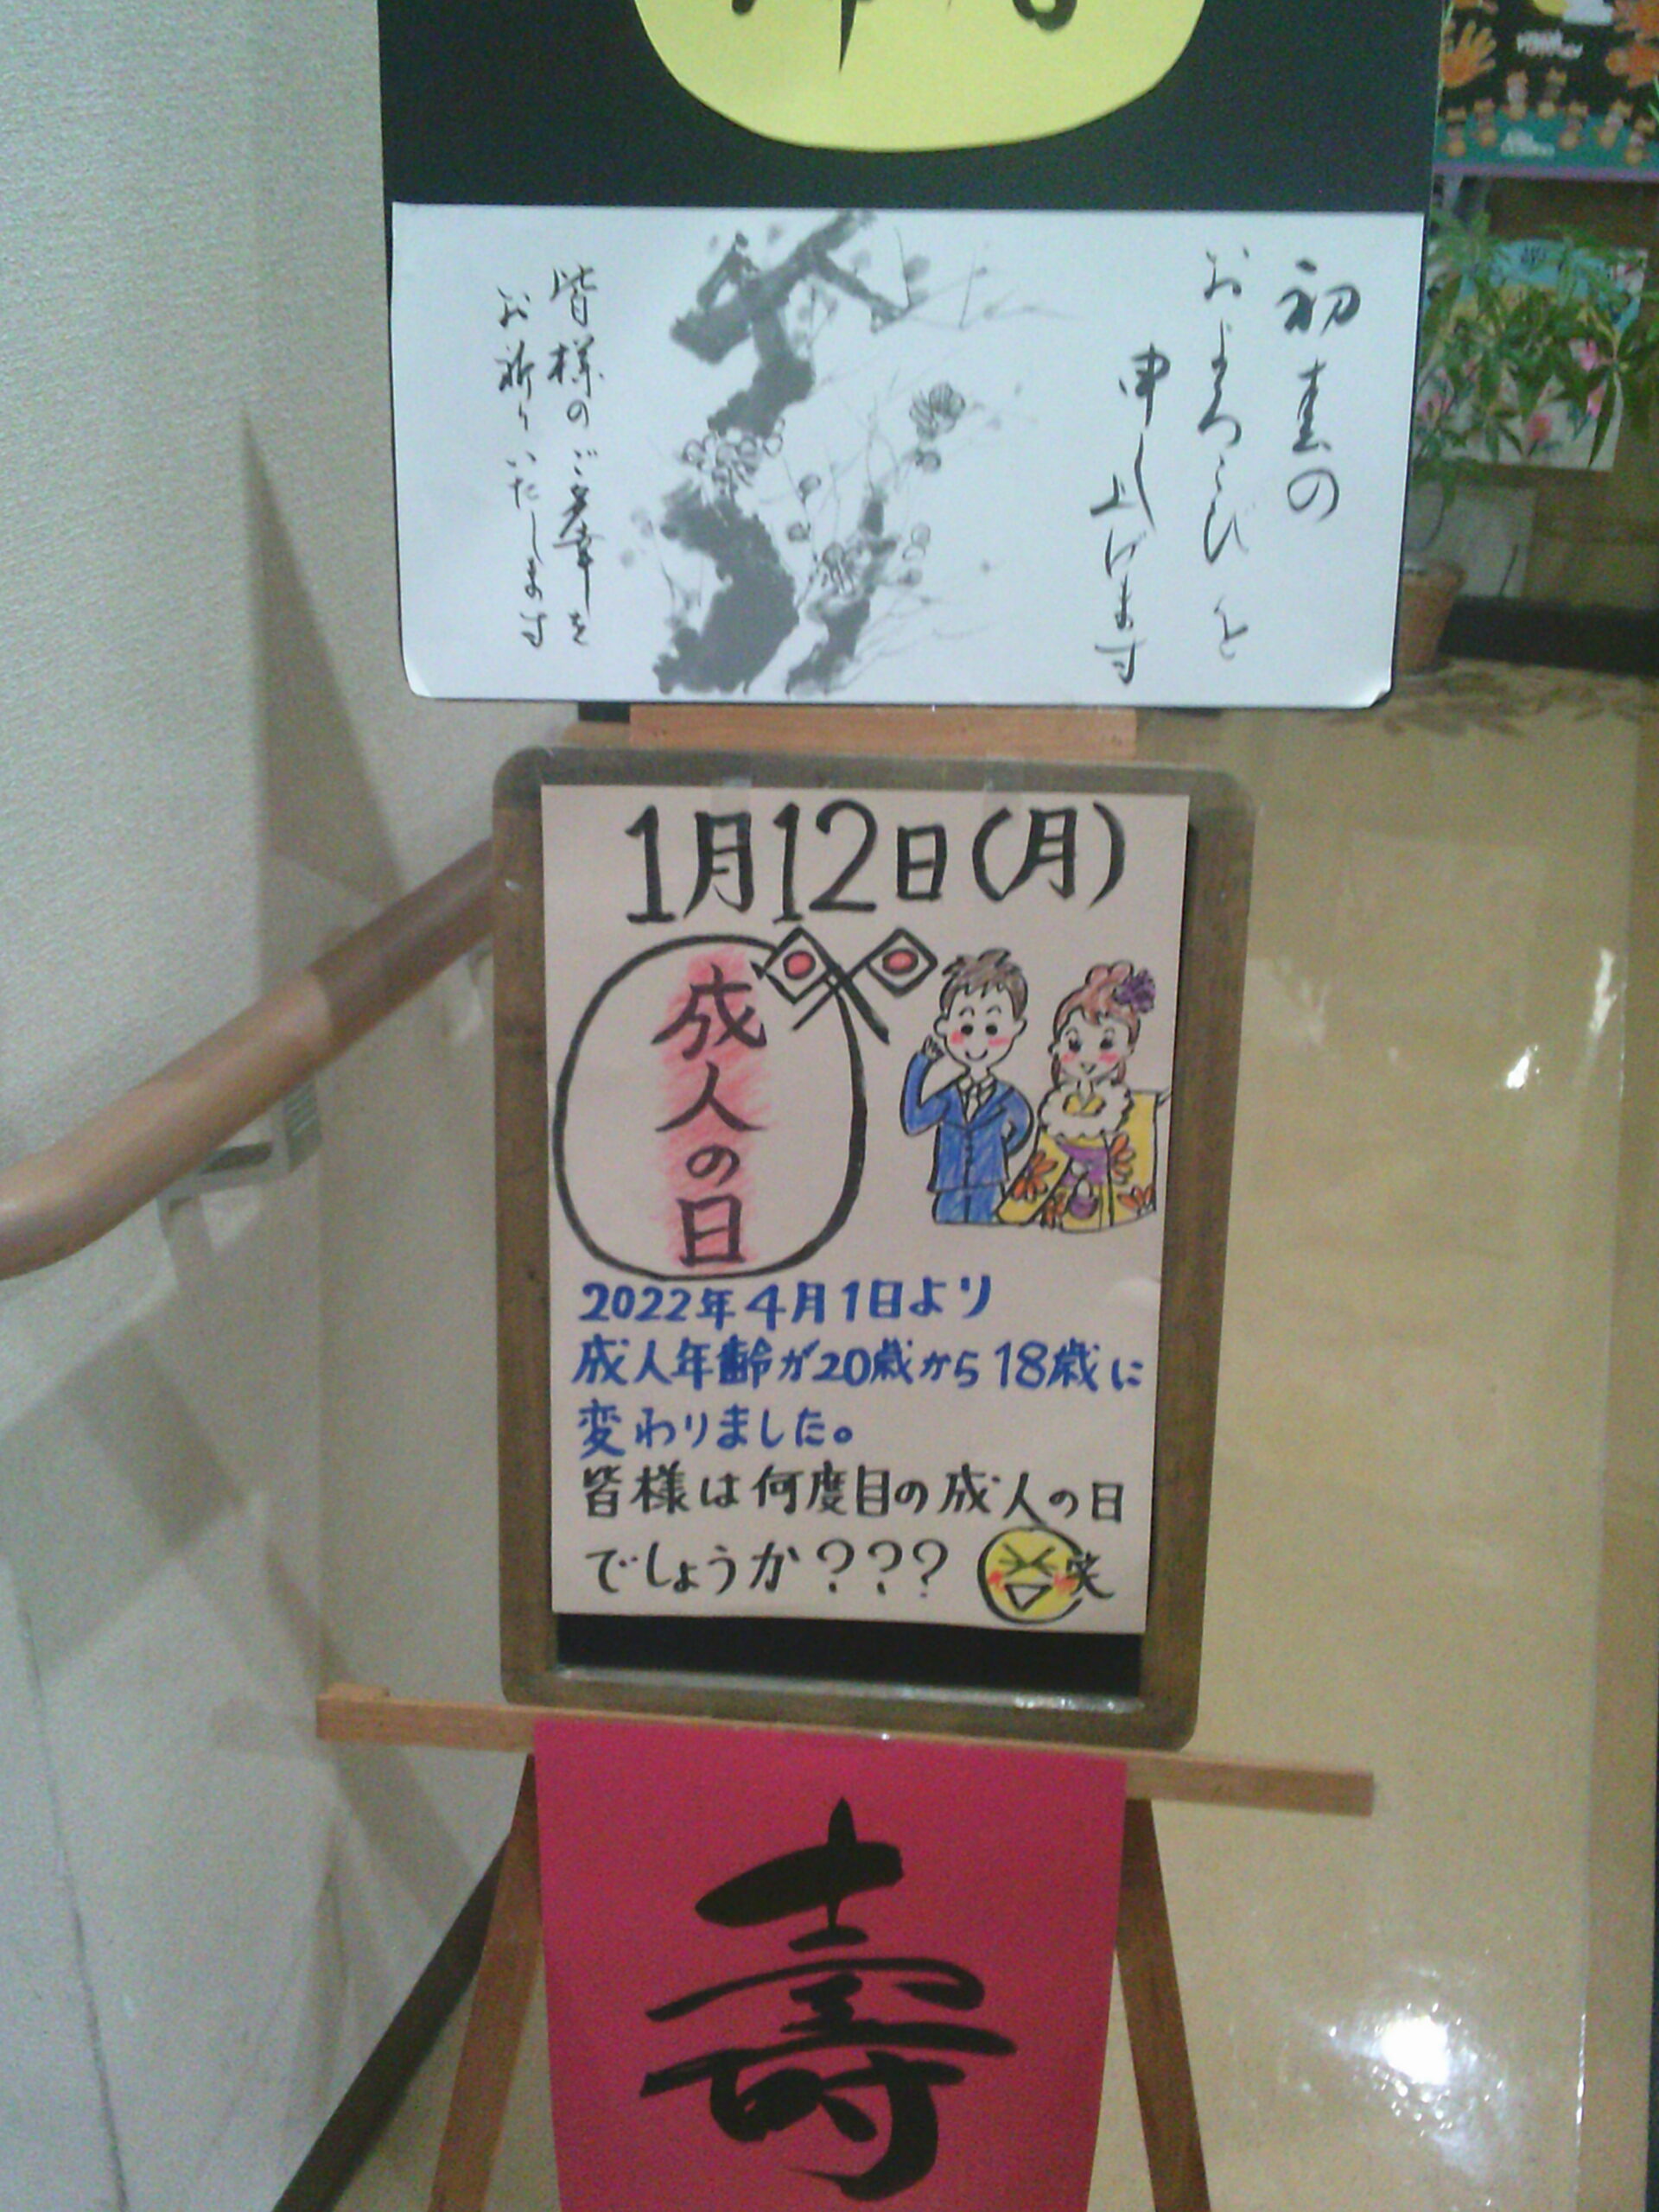 初春の
およろこびを
申し上げます
皆様のご多幸を
お祈りいたします
1月12日(月)
成人の日
2022年4月1日より
成人年齢が20歳から18歳に
変わりました。
皆様は何度目の成人の日
でしょうか???
笑
寿